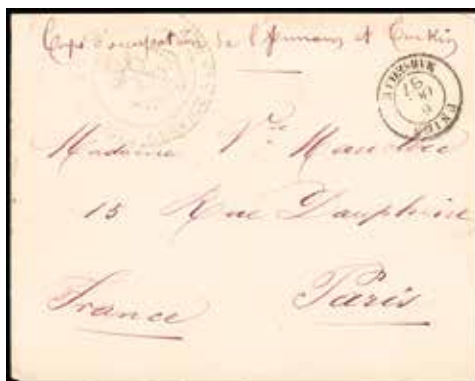 Corps d'occupation de l'Annam et Tonkin
Madame Vve
15 Rue Dauphine
France Paris